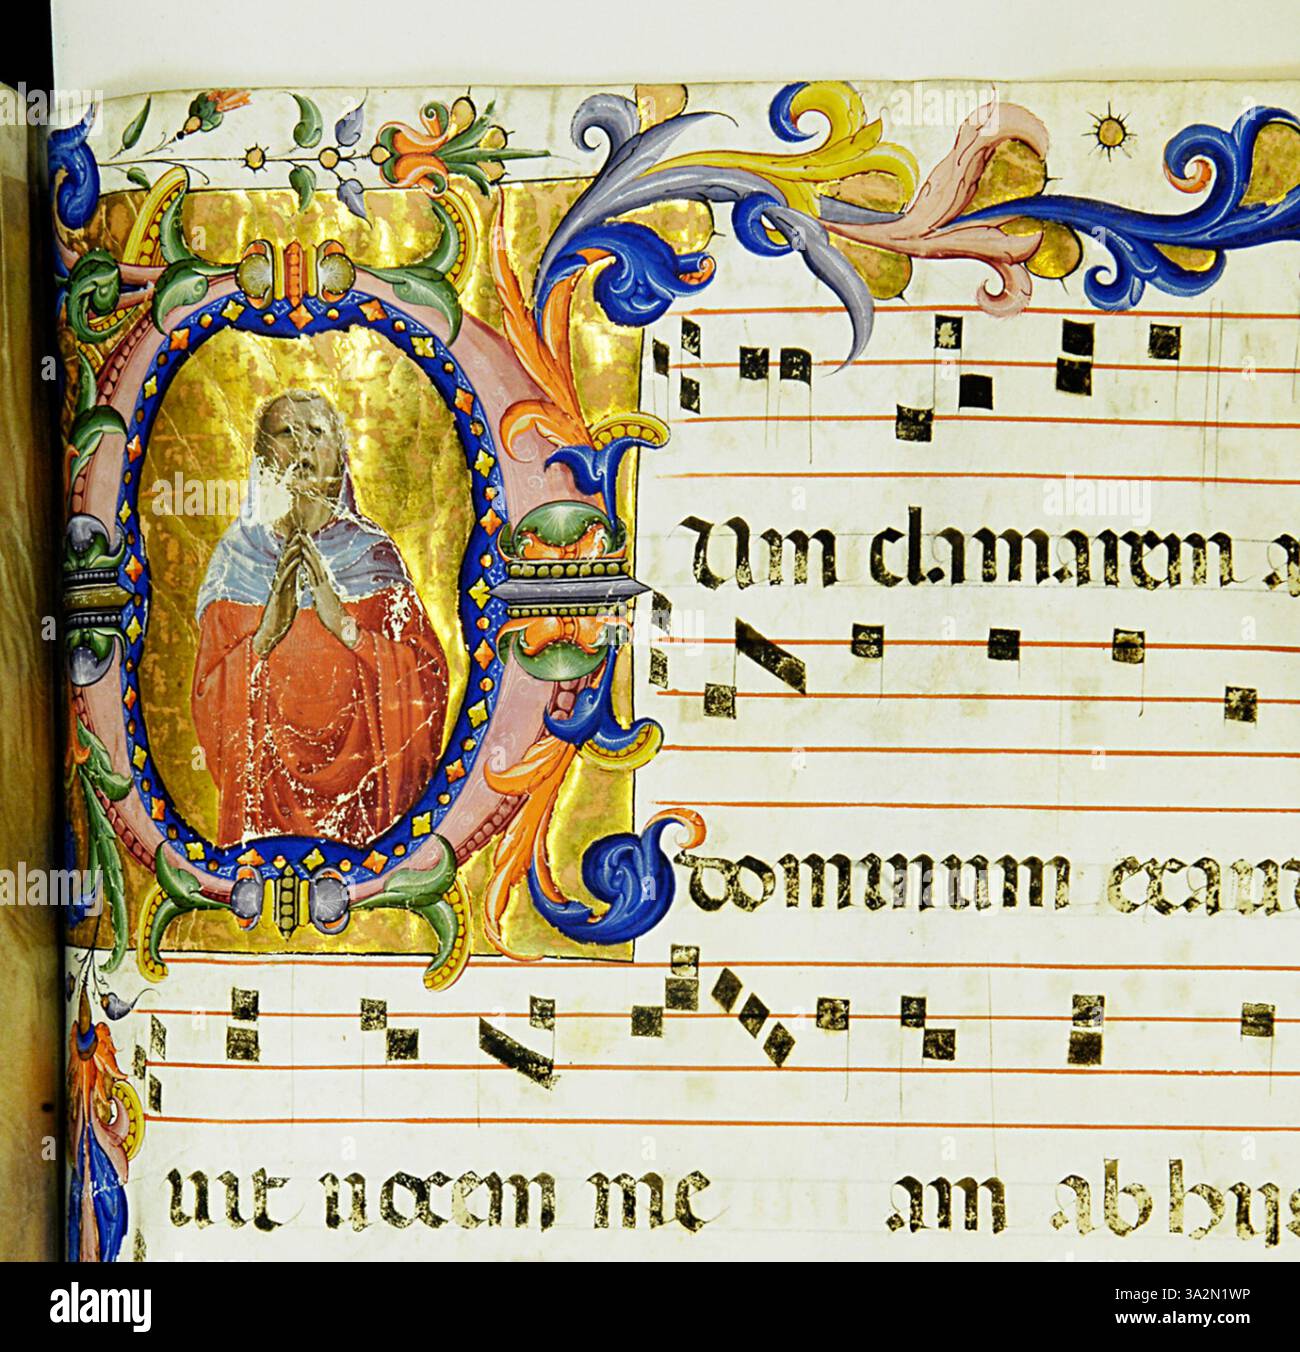 Dum clamarem a
dominum exaud
iuit uocem me am ab hijs
alamy
Image ID: 3A2N1WP
www.alamy.com